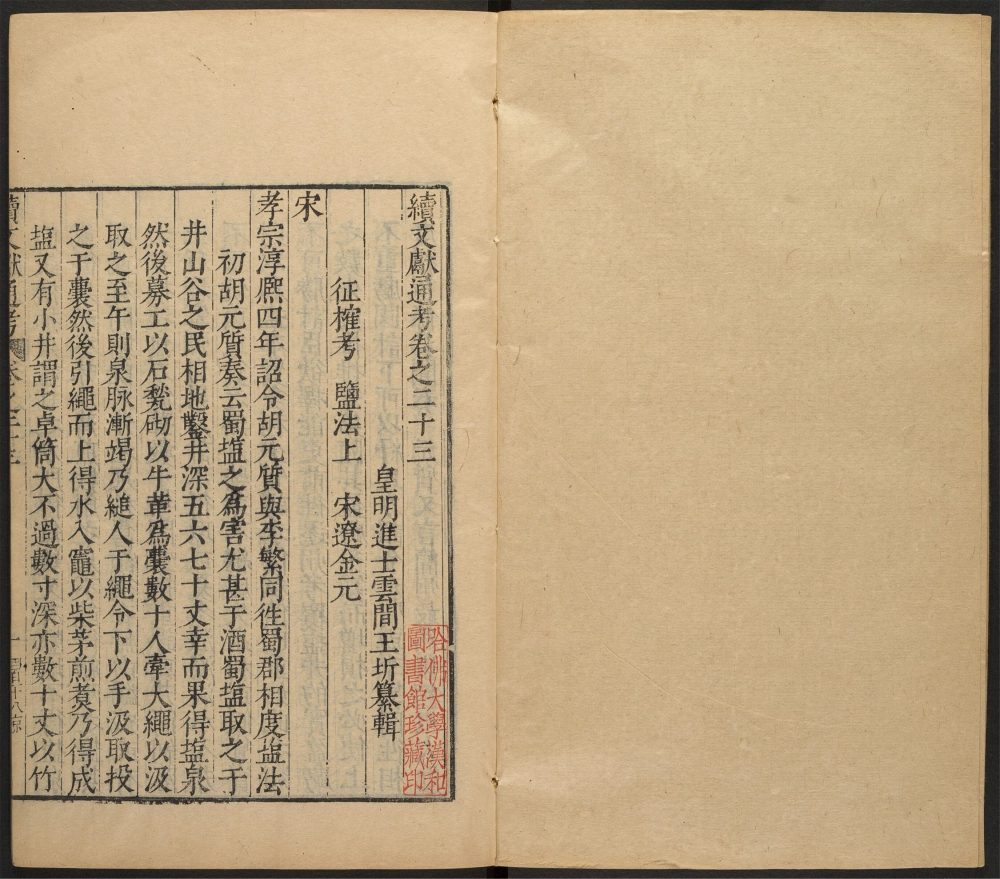 續文獻通考卷之二十三
皇明進士雲間王圻纂輯
征榷考 鹽法上 宋遼金元
宋
孝宗淳熈四年詔令胡元質與李繁同徃蜀郡相度塩法
初胡元質奏云蜀塩之爲害尤甚于酒蜀塩取之于
井山谷之民相地鑿井深五六七十丈幸而果得塩泉
然後募工以石甃砌以牛革爲囊數十人牽大繩以汲
取之至午則泉脉漸竭乃縋人于繩令下以手汲取投
之于囊然後引繩而上得水入竈以柴茅煎煑乃得成
塩又有小井謂之卓筒大不過數寸深亦數十丈以竹
續文獻通考 卷之二十三 一
哈佛大學漢和
圖書館珍藏印